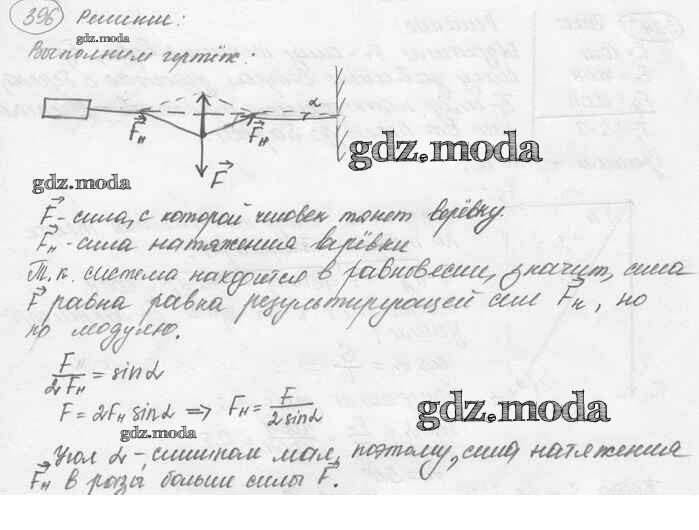 396 Решение:
gdz.moda
Выполним чертёж:
α
F н
F н
gdz.moda
gdz.moda
F
F - сила, с которой человек тянет верёвку.
Fн - сила натяжения верёвки
Т.к. система находится в равновесии, значит, сила
F равна равна результирующей сил Fн, но
по модулю.
F/2Fн = sinα
F = 2Fн sinα => Fн = F/2sinα
gdz.moda
gdz.moda
Угол α - слишком мал, поэтому, сила натяжения
Fн в разы больше силы F.